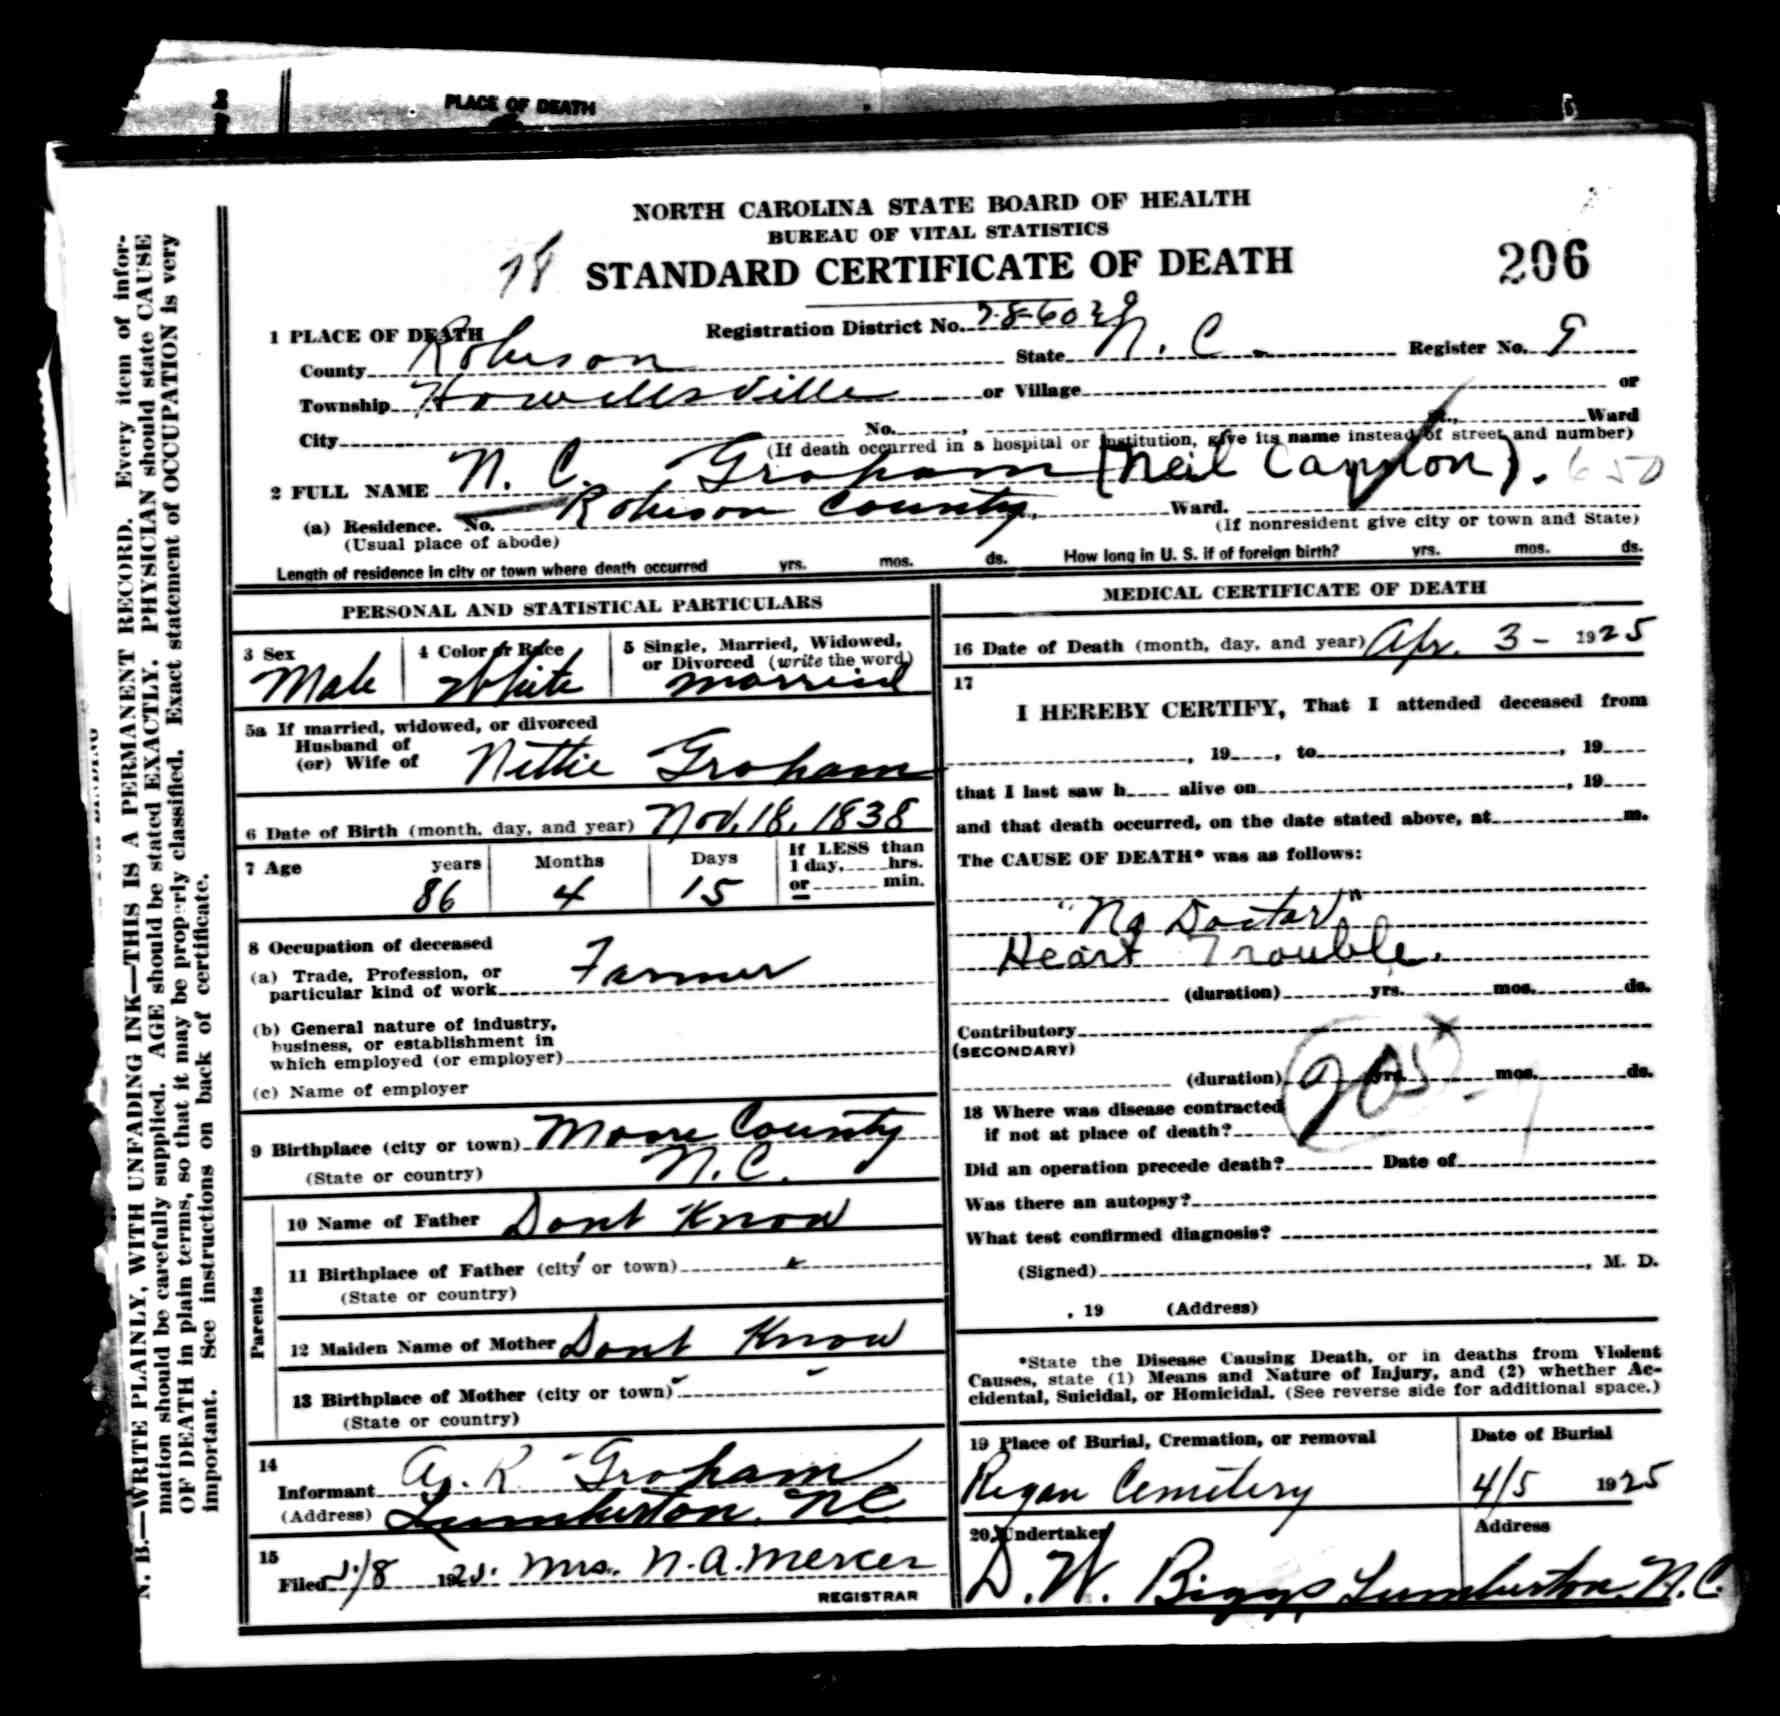 PLACE OF DEATH
NORTH CAROLINA STATE BOARD OF HEALTH
BUREAU OF VITAL STATISTICS
78 STANDARD CERTIFICATE OF DEATH 206
1 PLACE OF DEATH Registration District No. 78-6029
County Robeson State N. C. Register No. 9
Township Howellsville or Village or
City No. , St., Ward
(If death occurred in a hospital or institution, give its name instead of street and number)
2 FULL NAME N. C. Graham (Neil Camdon). 650
(a) Residence. No. Robeson County, Ward.
(Usual place of abode) (If nonresident give city or town and State)
Length of residence in city or town where death occurred yrs. mos. ds. How long in U. S. if of foreign birth? yrs. mos. ds.
PERSONAL AND STATISTICAL PARTICULARS
3 Sex 4 Color or Race 5 Single, Married, Widowed,
or Divorced (write the word)
Male White Married
5a If married, widowed, or divorced
Husband of
(or) Wife of Nettie Graham
6 Date of Birth (month, day, and year) Nov. 18, 1838
7 Age years Months Days If LESS than
1 day, hrs.
or min.
86 4 15
8 Occupation of deceased
(a) Trade, Profession, or
particular kind of work Farmer
(b) General nature of industry,
business, or establishment in
which employed (or employer)
(c) Name of employer
9 Birthplace (city or town) Moore County
(State or country) N. C.
Parents
10 Name of Father Dont Know
11 Birthplace of Father (city or town)
(State or country)
12 Maiden Name of Mother Dont Know
13 Birthplace of Mother (city or town)
(State or country)
14
Informant A. R. Graham
(Address) Lumberton, N.C.
15
Filed 5/8 1925. Mrs. N. A. Mercer
REGISTRAR
MEDICAL CERTIFICATE OF DEATH
16 Date of Death (month, day, and year) Apr. 3 - 1925
17
I HEREBY CERTIFY, That I attended deceased from
, 19 , to , 19
that I last saw h alive on , 19
and that death occurred, on the date stated above, at m.
The CAUSE OF DEATH* was as follows:
"No Doctor"
Heart Trouble.
(duration) yrs. mos. ds.
Contributory
(SECONDARY)
(duration) yrs. mos. ds.
205
18 Where was disease contracted
if not at place of death?
Did an operation precede death? Date of
Was there an autopsy?
What test confirmed diagnosis?
(Signed) , M. D.
, 19 (Address)
*State the Disease Causing Death, or in deaths from Violent
Causes, state (1) Means and Nature of Injury, and (2) whether Ac-
cidental, Suicidal, or Homicidal. (See reverse side for additional space.)
19 Place of Burial, Cremation, or removal Date of Burial
Regan Cemetery 4/5 1925
20 Undertaker Address
D. W. Biggs Lumberton, N. C.
N. B.—WRITE PLAINLY, WITH UNFADING INK—THIS IS A PERMANENT RECORD. Every item of infor-
mation should be carefully supplied. AGE should be stated EXACTLY. PHYSICIAN should state CAUSE
OF DEATH in plain terms, so that it may be properly classified. Exact statement of OCCUPATION is very
important. See instructions on back of certificate.